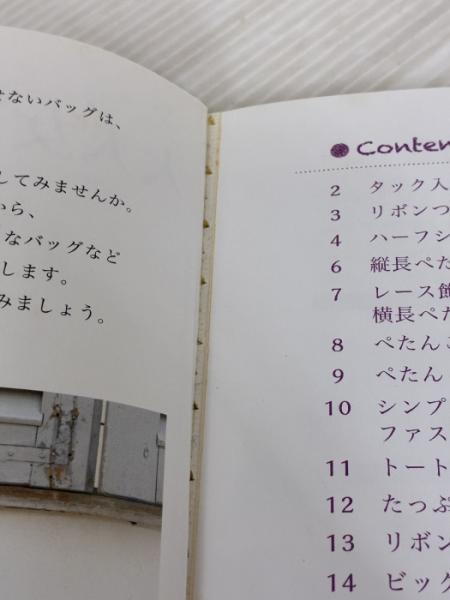 せないバッグは、
してみませんか。
から、
なバッグなど
します。
みましょう。
Conten
2 タック入
3 リボンつ
4 ハーフシ
6 縦長ぺた
7 レース飾
横長ぺた
8 ぺたんこ
9 ぺたん
10 シンプ
ファス
11 トート
12 たっぷ
13 リボン
14 ビッグ